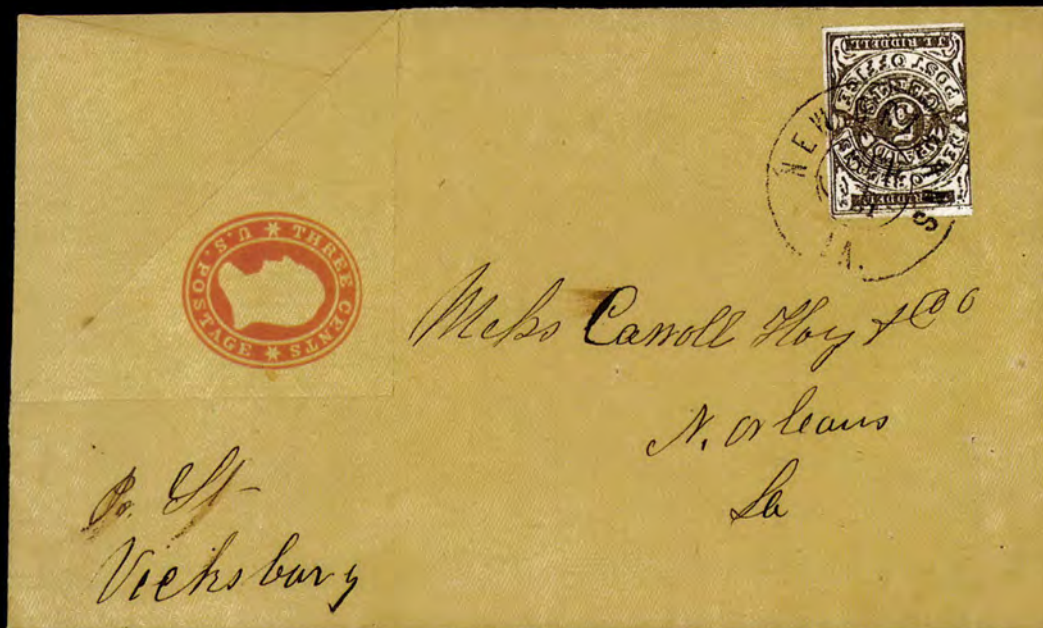 J.L. RIDDELL
POST OFFICE
5
NEW
LA.
U.S. POSTAGE * THREE CENTS *
Mess Carroll Hoy & Co
N. Orleans
La
Pr. St
Vicksburg